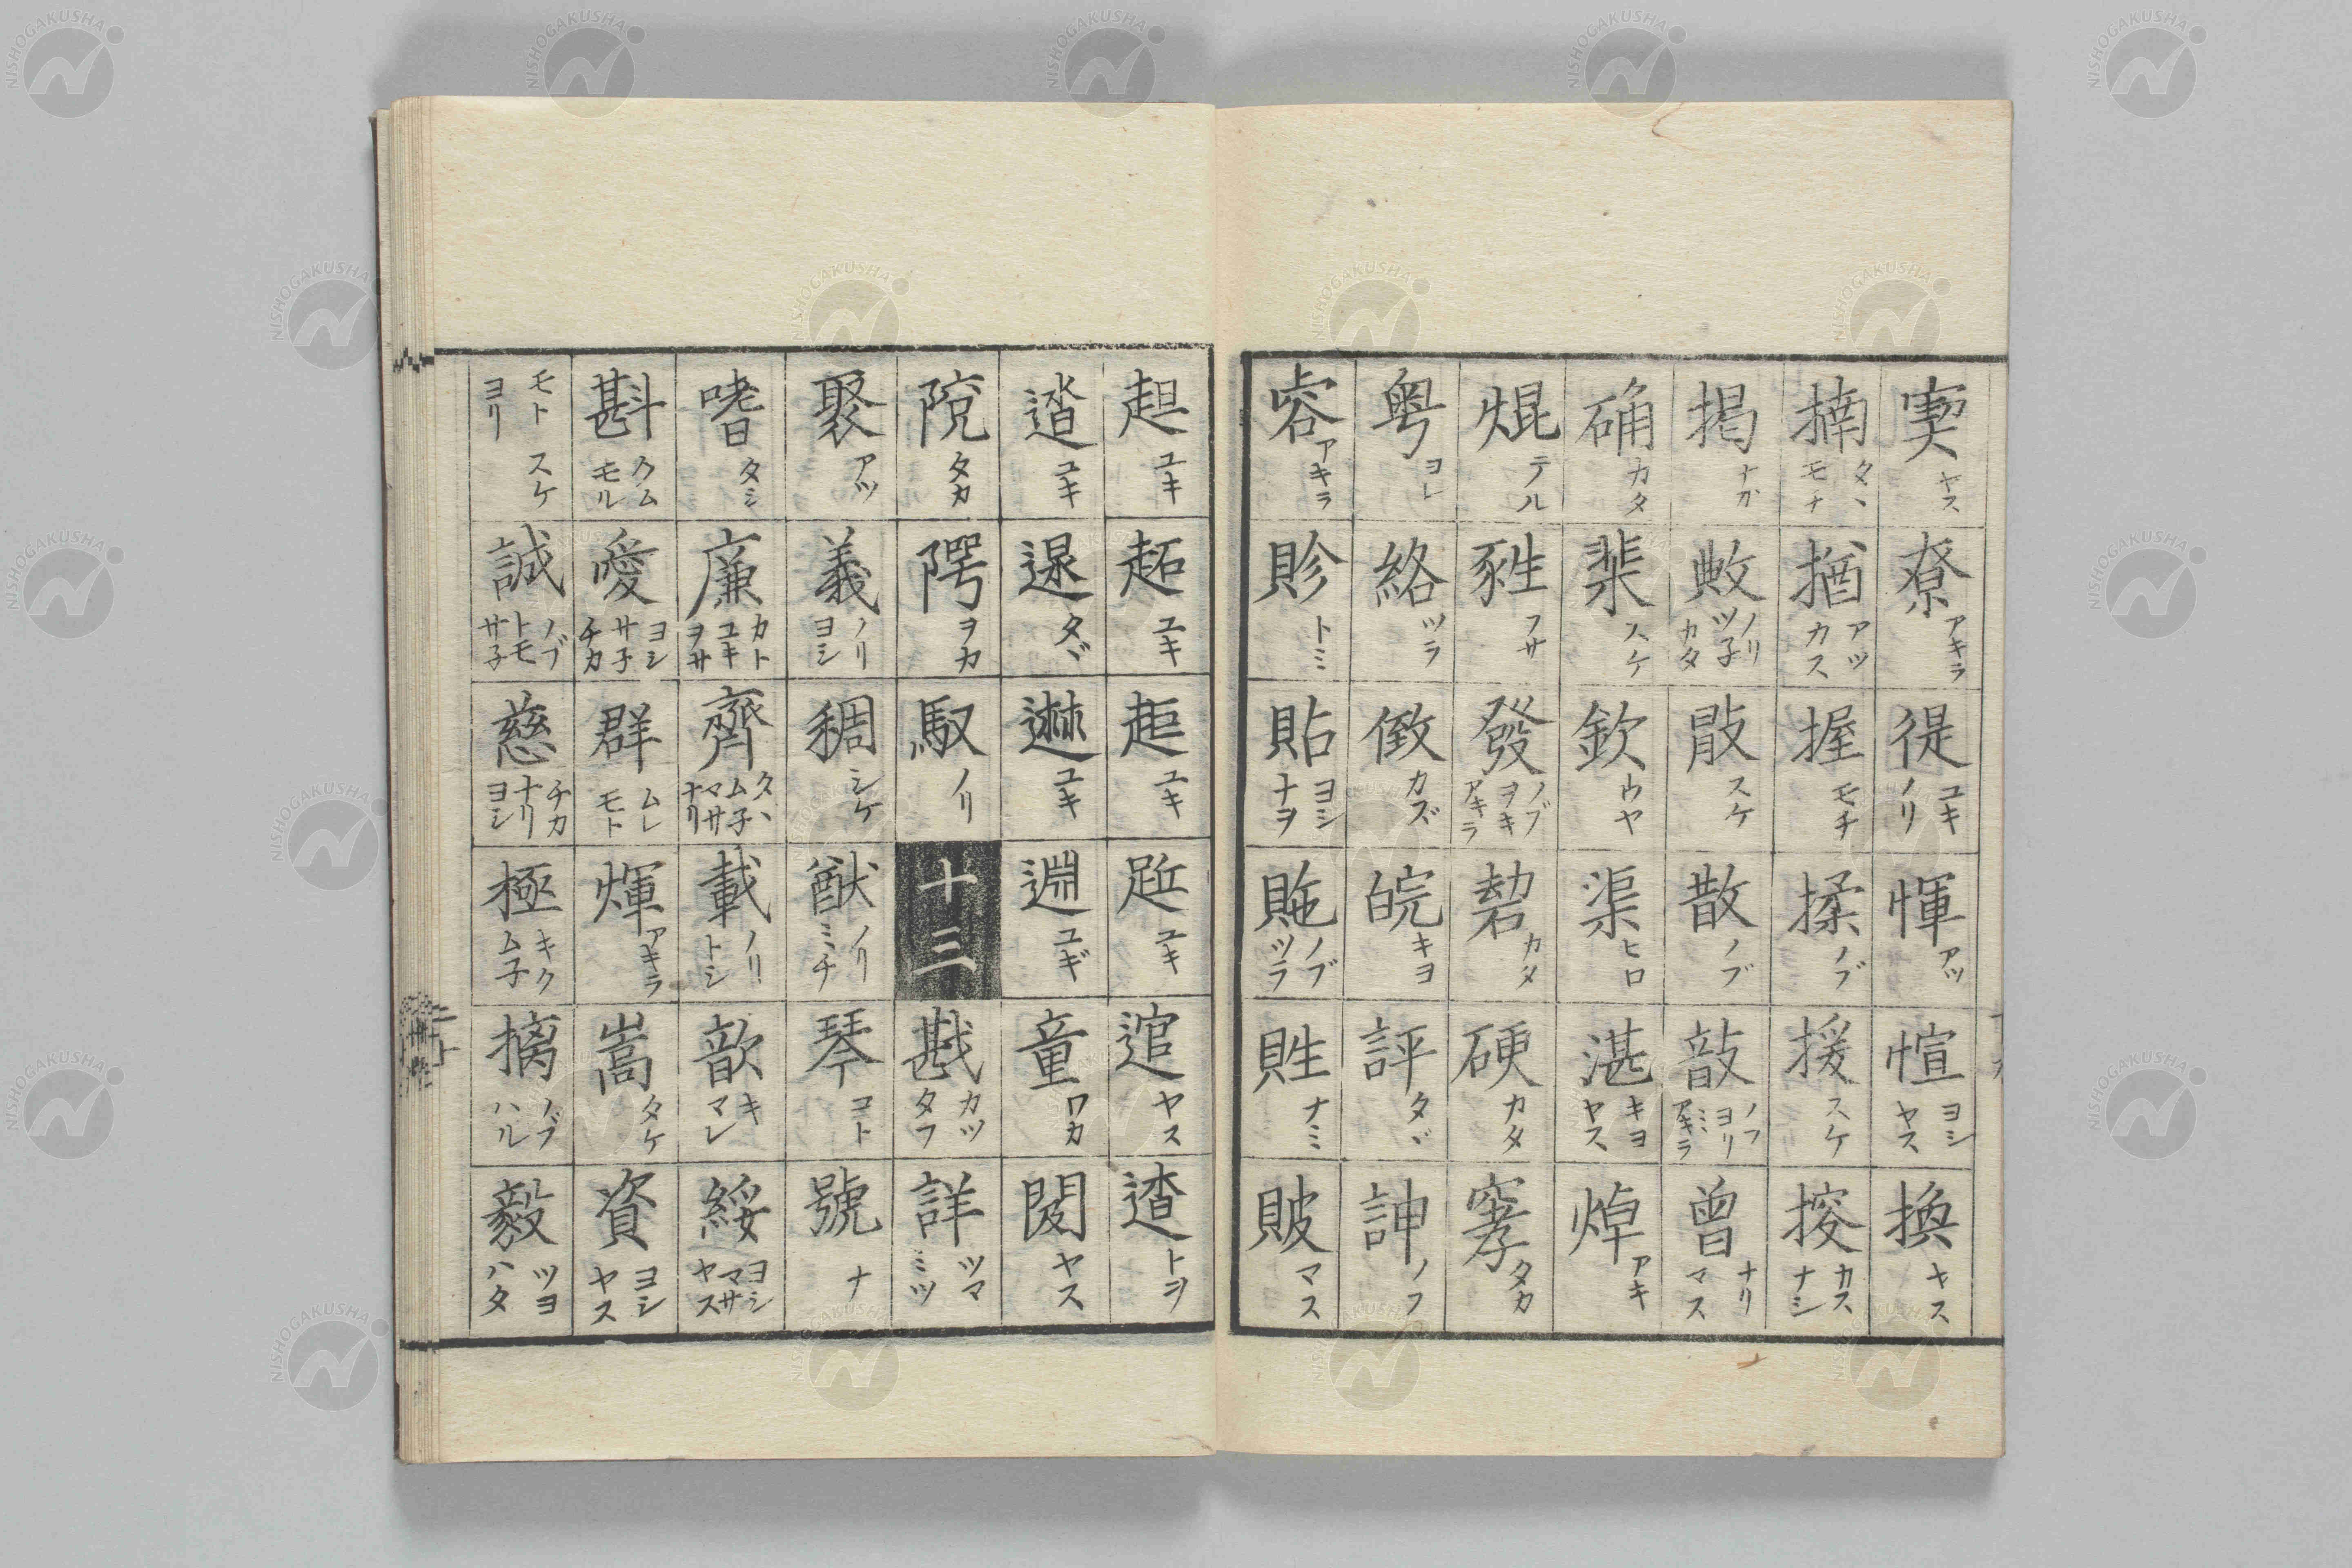 寏 ヤス
尞 アキラ
徥 ユキ ノリ
惲 アツ
愃 ヨシ ヤス
換 ヤス
揇 タヽ モチ
揂 アツ カス
握 モチ
揉 ノブ
援 スケ
揬 カス ナシ
掲 ナカ
敟 ノリ ツ子 カタ
スケ
散 ノブ
敼 ノフ ヨリ ミ アキラ
曾 ナリ マス
确 カタ
棐 スケ
欽 ウヤ
渠 ヒロ
湛 キヨ ヤス
焯 アキ
焜 テル
フサ
發 ノブ ヲキ アキラ
硈 カタ
硬 カタ
タカ
粤 ヨレ
絡 ツラ
カズ
皖 キヨ
評 タヾ
訷 ノフ
アキラ
貯 トミ
貼 ヨシ ナヲ
貤 ノブ ツラ
貹 ナミ
貱 マス
ユキ
ユキ
ユキ
ユキ
逭 ヤス
トヲ
ユキ
タヾ
ユキ
ユギ
童 ワカ
閔 ヤス
タカ
ヲカ
馭 ノリ
十三
戡 カツ タフ
詳 ツマ ミツ
聚 アツ
義 ノリ ヨシ
稠 シケ
猷 ノリ ミチ
琴 コト
號 ナ
嗜 タシ
廉 カト ユキ ヲサ
齊 タヽ ム子 マサ ナリ
載 ノリ トシ
歆 キ マレ
綏 ヨシ マサ ヤス
斟 クム モル
愛 ヨシ サ子 チカ
群 ムレ モト
煇 アキラ
嵩 タケ
資 ヨシ ヤス
モト スケ ヨリ
誠 ノブ トモ サ子
慈 チカ ナリ ヨシ
極 キク ム子
摛 ノブ ハル
毅 ツヨ ハタ
NISHOGAKUSHA